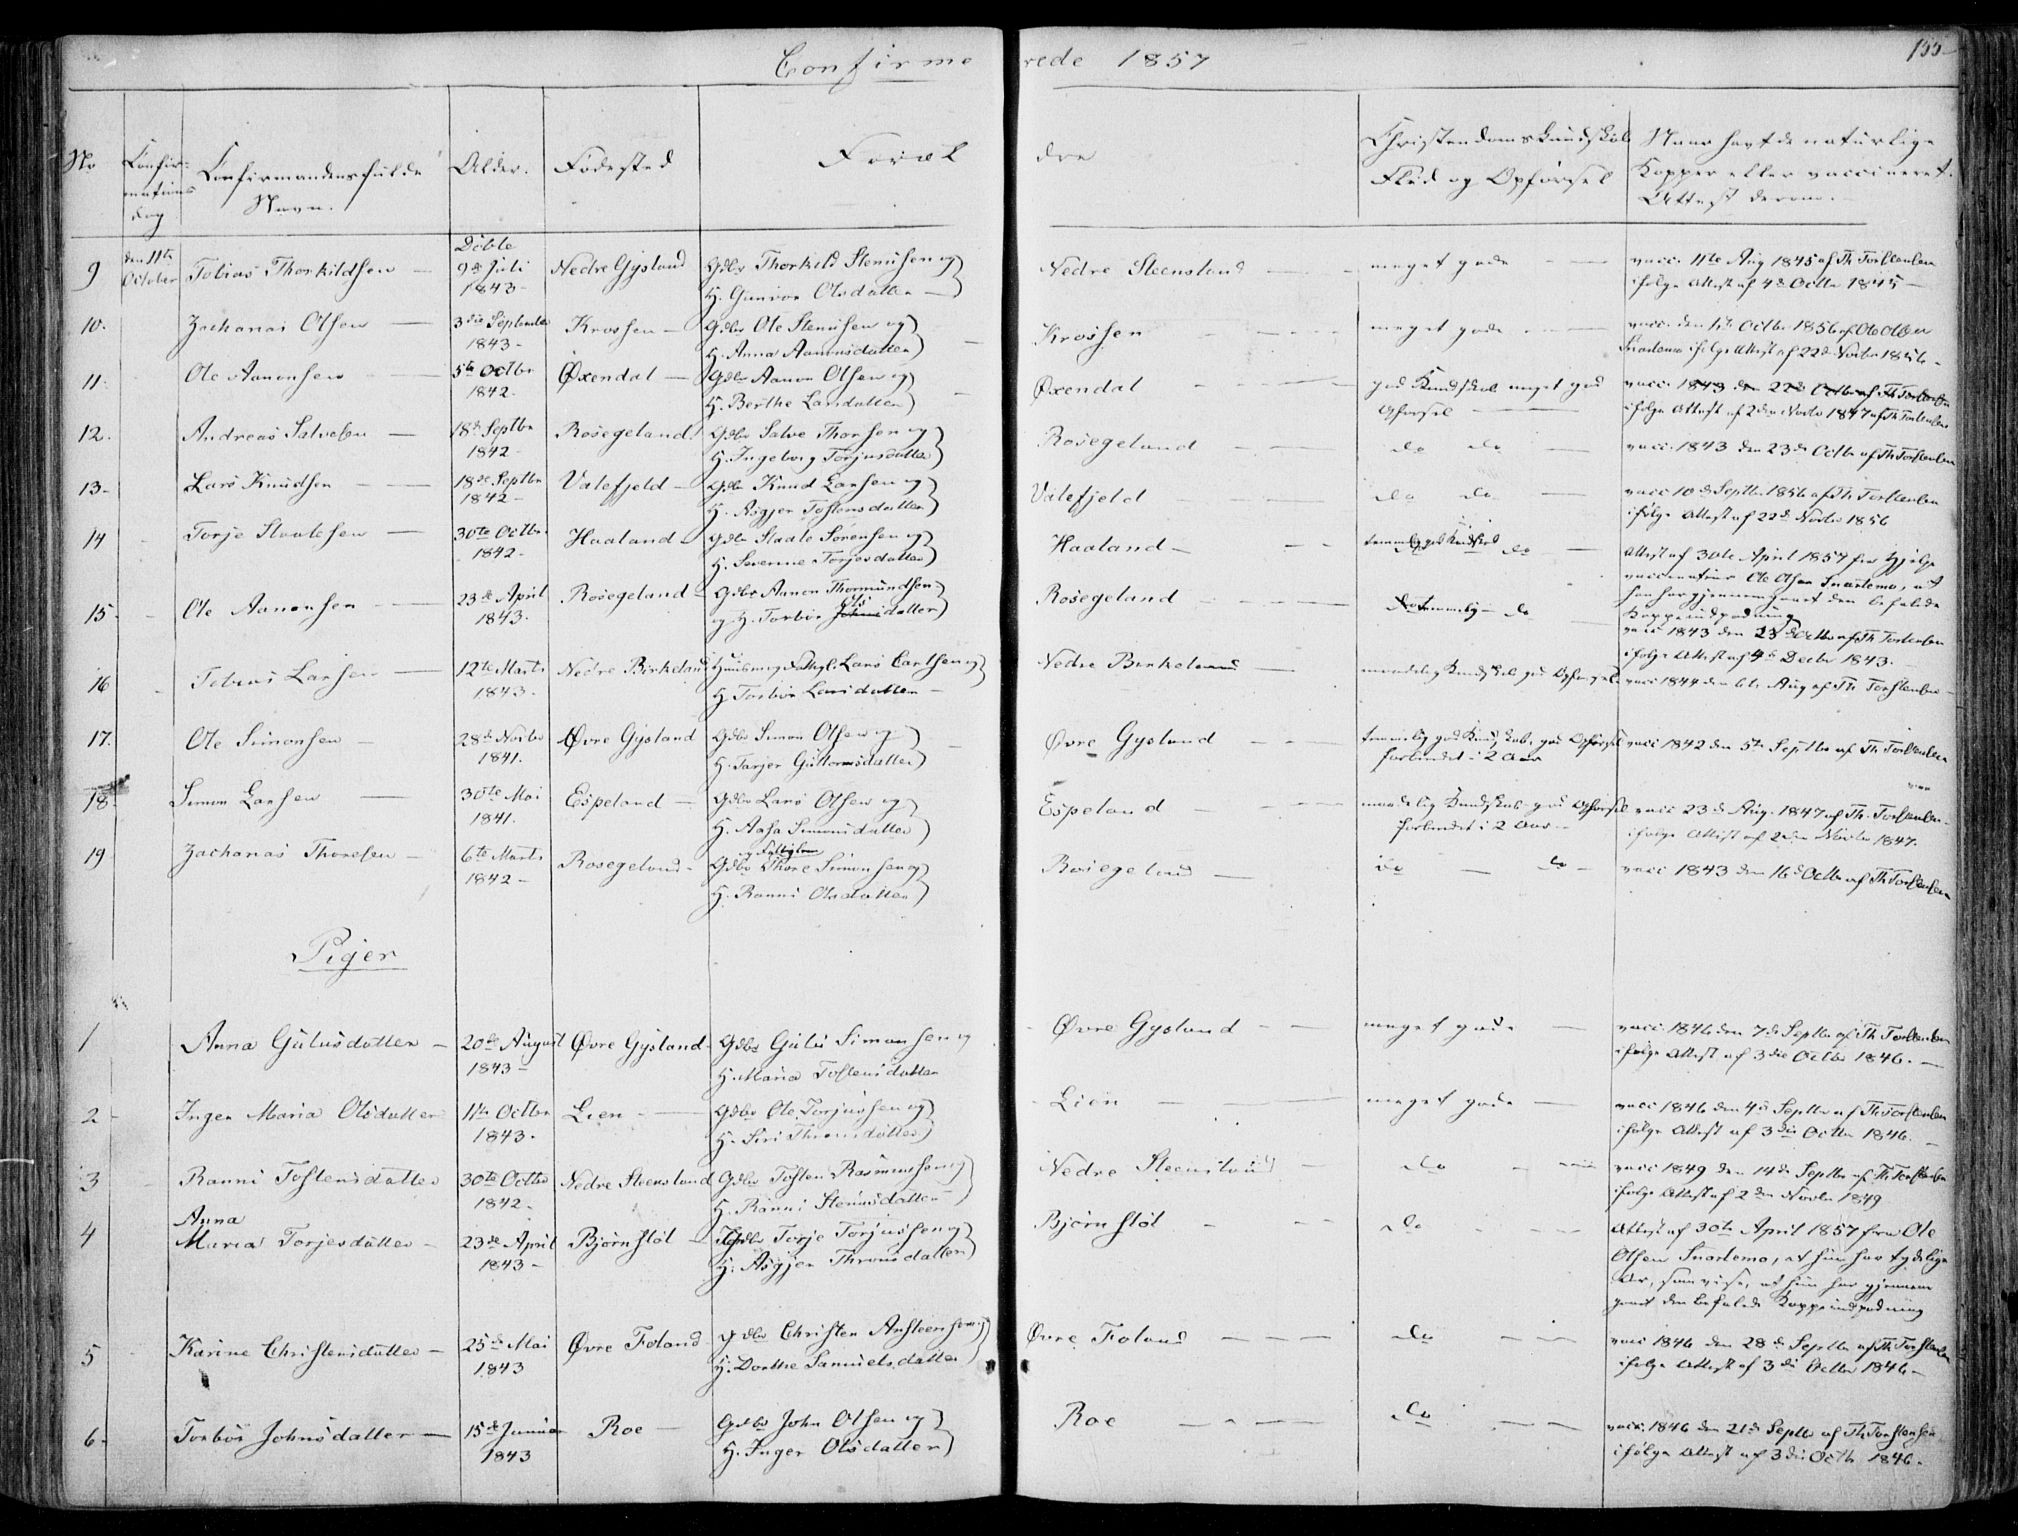 Confirmerede 1857
155
No
Confirmations dag
Confirmandens fulde Navn.
Alder.
Fødested
Forældre
Christendomskundskab Flid og Opførsel
Naar havt de naturlige Kopper eller vaccineret. Attest derom.
9 den 11te October Tobias Thorkildsen — Døbte 9de Juli 1843 — Nedre Gysland Gdbr Thorkild Stenusen og H. Gunvor Olsdatter — Nedre Steensland — meget gode — vacc. 11te Aug 1845 af Th Torstensen ifølge Attest af 4de Octbr 1845 —
10. Zacharias Olsen — 3die September 1843 — Krossen — Gdbr Ole Stenusen og H. Anna Aanensdatter — Krossen — meget gode — vacc. den 1ste Octbr 1856 af Ole Olsen Snartemo ifølge Attest af 22de Novbr 1856 —
11. Ole Aanonsen — 5te Octbr 1842. Øxendal — Gdbr Aanon Olsen og H. Berthe Larsdatter — Øxendal — god Kundskab meget god Opførsel — vacc. 1843 den 22de Octbr af Th Torstensen ifølge Attest af 2den Novbr 1847 af Th Torstensen
12. Andreas Salvesen — 18de Septbr 1842 — Rosegeland Gdbr Salve Thorsen og H. Ingeborg Torjusdatter Rosegeland — do do — vacc. 1843 den 23de Octbr af Th Torstensen
13 — Lars Knudsen — 18de Septbr 1842 — Valefjeld — Gdbr Knud Larsen og H. Asgjer Tostensdatter Valefjeld — do do — vacc 10de Septbr 1856 af Th Torstensen ifølge Attest af 22de Novbr 1856
14 Torje Staalesen — 30te Octbr 1842 — Haaland — Gdbr Staale Sørensen og H. Severine Torjesdatter Haaland — temmelig god Kundskab do — Attest af 30te April 1857 fra Hjelpevaccinatør Ole Olsen Snartemo, at han har gjennemgaaet den befalede Koppeindpodning
15. Ole Aanonsen — 23de April 1843. Rosegeland — Gdbr Aanon Thormundsen og H. Torbor Olsdatter Rosegeland — temmelig — do — vacc 1843 den 23de Octbr af Th Torstensen ifølge Attest af 4de Decbr 1843. —
16 Tobias Larsen — 12te Marts 1843. Nedre Birkeland Huusm og Fattigl. Lars Carlsen og H Torbor Larsdatter — Nedre Birkeland — maadelig Kundskab god Opførsel vacc 1844 den 6te Aug af Th Torstensen —
17. Ole Simonsen — 28de Novbr 1841. Øvre Gysland Gdbr Simon Olsen og H. Tarjer Guttormsdatter — Øvre Gysland — temmelig god Kundskab, god Opførsel forbindet i 2 Aar vacc 1842 den 5te Septbr af Th Torstensen
18. Simon Larsen — 30te Mai 1841. Espeland — Gdbr Lars Olsen og H. Aasa Simonsdatter Espeland — maadelig Kundskab god Opførsel forbindet i 2 Aar — vacc 23de Aug. 1847 af Th. Torstensen — ifølge Attest af 2den Novbr 1847.
19 Zacharias Thoresen — 6te Marts 1842 — Rosegeland — Gdbr og Fattiglem Thore Simonsen og H. Ranni Olsdatter Rosegeland — do — do — vacc 1843 den 16de Octbr af Th Torstensen
Piger
1 Anna Gulusdatter — 20de August 1843 — Øvre Gysland — Gdbr Gulu Simonsen og H. Maria Tostensdatter Øvre Gysland — meget gode — vacc. 1846 den 7de Septbr af Th Torstensen ifølge Attest af 3die Octbr 1846. —
2 Inger Maria Olsdatter 11te Octbr 1843. Lien — Gdbr Ole Torjussen og H. Siri Thronsdatter Lien — meget gode — vacc 1846 den 4de Septbr af Th Torstensen ifølge Attest af 3die Octbr 1846. —
3 Ranni Tostensdatter 30te Octbr 1842 — Nedre Steensland Gdbr Tosten Rasmussen og H. Ranni Stenusdatter Nedre Steensland — do — vacc 1849 den 14de Septbr af Th Torstensen ifølge Attest af 2den Novbr 1849
4 Anna Maria Torjesdatter — 23de April 1843 — Bjørnstøl — Gdbr Torje Torjussen og H. Asgjer Thronsdatter Bjørnstøl — do — Attest af 30te April 1857 fra Ole Olsen Snartemo, at hun har tydelige Ar, som vise, at hun har gjennemgaaet den befalede Koppeindpodning
5 Karine Christensdatter — 25de Mai 1843 Øvre Foland Gdbr Christen Ansteensen og H. Dorthe Samuelsdatter Øvre Foland — do — vacc 1846 den 28de Septbr af Th Torstensen ifølge Attest af 3die Octbr 1846 —
6 — Torbor Johnsdatter — 15de Januar 1843 Roe — Gdbr John Olsen og H. Inger Olsdatter Roe — do — vacc. 1846 den 21de Septbr af Th Torstensen ifølge Attest af 3die Octbr 1846.